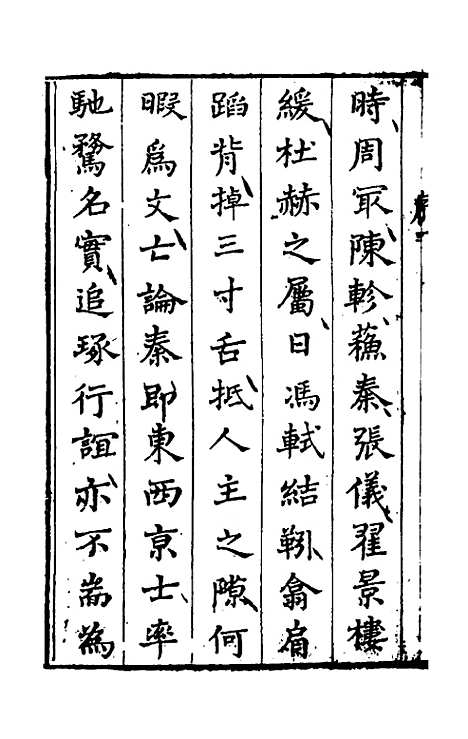 時周冣陳軫蘓秦張儀翟景樓
緩杜赫之屬日馮軾結靷翕肩
蹈背掉三寸舌抵人主之隙何
暇爲文士論秦即東西京士率
馳騖名實追琢行誼亦不耑為